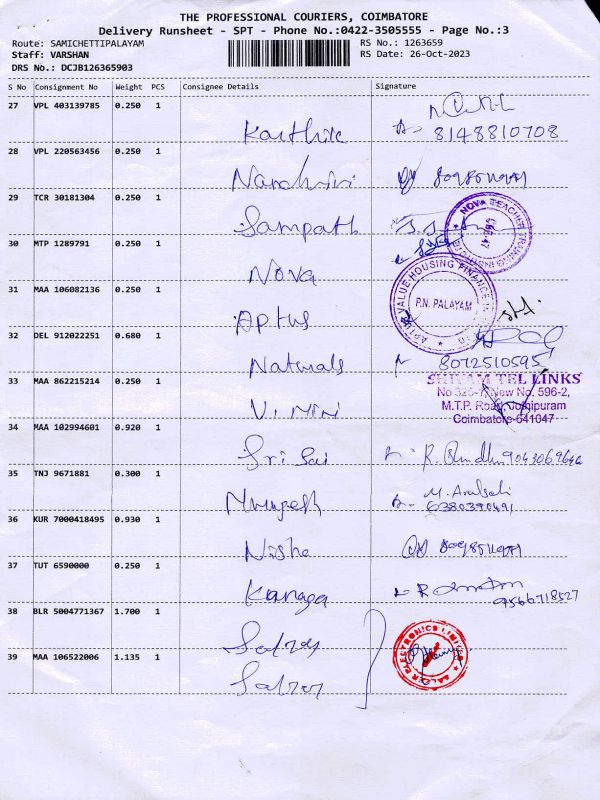 THE PROFESSIONAL COURIERS, COIMBATORE
Delivery Runsheet - SPT - Phone No.:0422-3505555 - Page No.:3
Route: SAMICHETTIPALAYAM RS No.: 1263659
Staff: VARSHAN RS Date: 26-Oct-2023
DRS No.: DCJB126365903
S No Consignment No Weight PCS Consignee Details Signature
27 VPL 403139785 0.250 1
Karthik 8148810708
28 VPL 220563456 0.250 1
Nandhini
29 TCR 30181304 0.250 1
Sampath
NOVA TEACHER TRAINING
30 MTP 1289791 0.250 1
Nova
31 MAA 106082136 0.250 1
VALUE HOUSING FINANCE
P.N. PALAYAM
Aptus
32 DEL 912022251 0.680 1
Naturals 8072510595
33 MAA 862215214 0.250 1
SHIVAM TEL LINKS
New No. 596-2,
M.T.P. Road,
Coimbatore-641047
V. Mini
34 MAA 102994601 0.920 1
Sri Sai
35 TNJ 9671881 0.300 1
Murugesh 6380390491
36 KUR 7000418495 0.930 1
Nisha
37 TUT 6590000 0.250 1
Kanaga 9566718527
38 BLR 5004771367 1.700 1
ELECTRONICS LIMITED
39 MAA 106522006 1.135 1